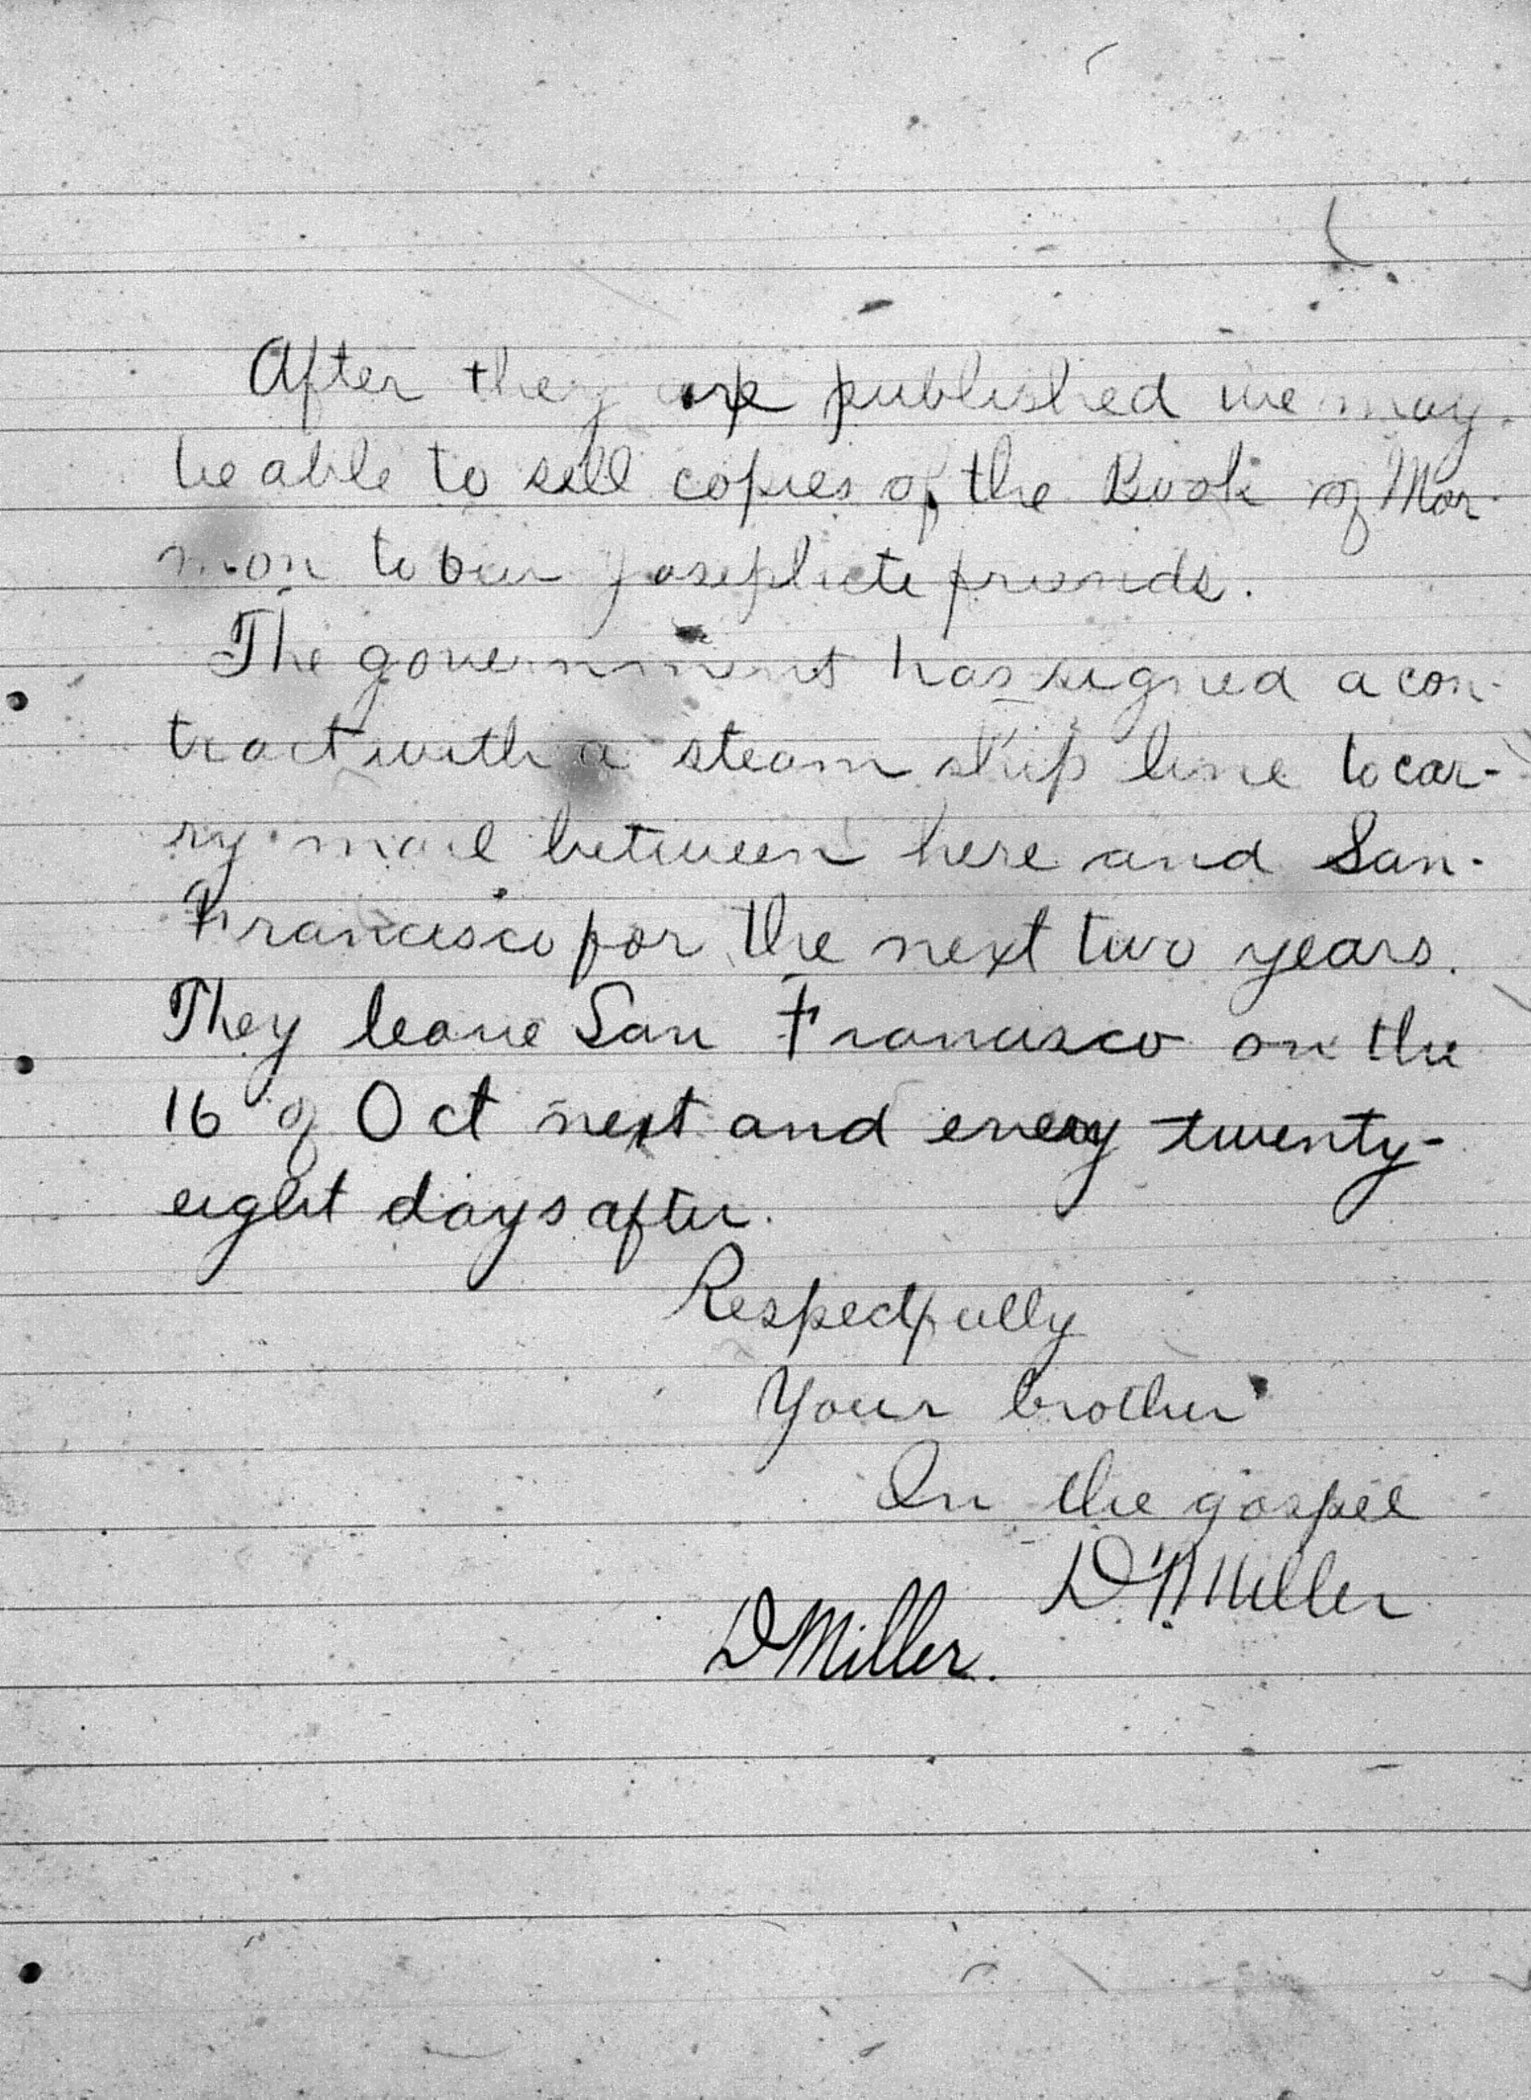 After they are published we may
be able to sell copies of the Book of Mor-
mon to our Josephite friends.
The government has signed a con-
tract with a steam ship line to car-
ry mail between here and San-
Francisco for the next two years.
They leave San Francisco on the
16 of Oct next and every twenty-
eight days after.
Respectfully
Your brother
In the gospel
D. Miller
D Miller.